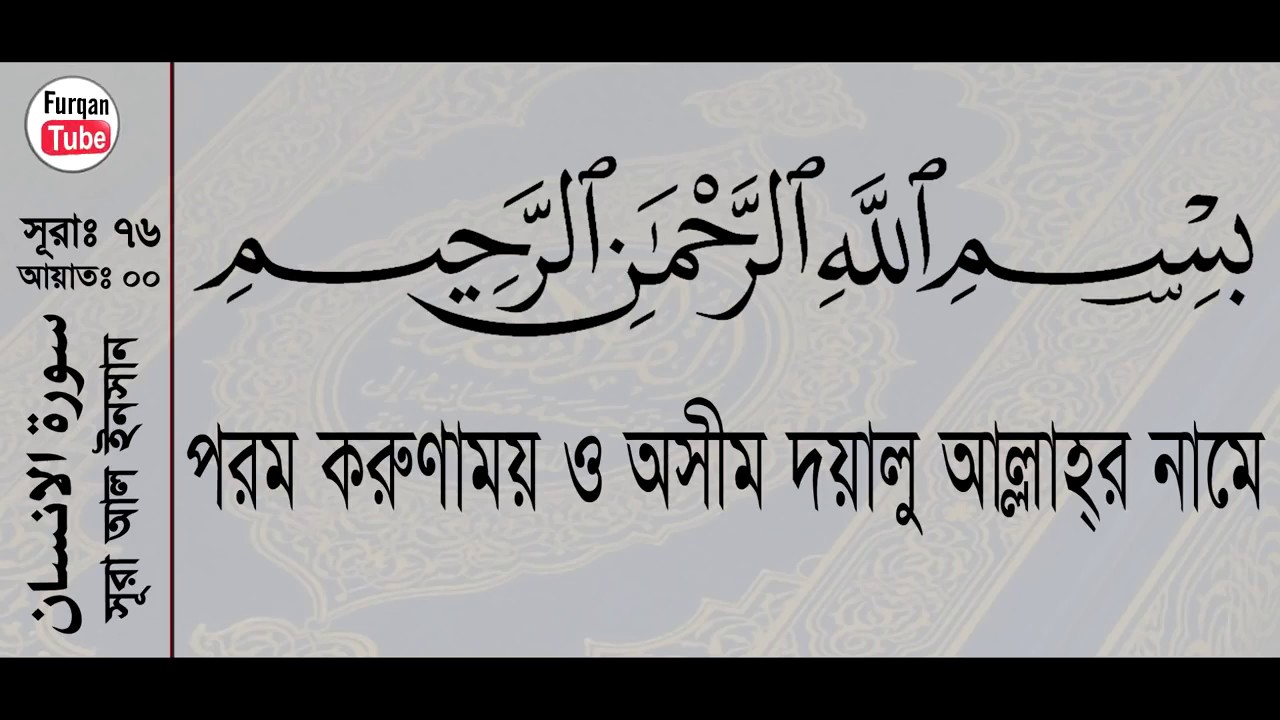 Furqan
Tube
সূরাঃ ৭৬
আয়াতঃ ০০
سورة الانسان
সূরা আল ইনসান
بِسْمِ ٱللَّهِ ٱلرَّحْمَٰنِ ٱلرَّحِيمِ
পরম করুণাময় ও অসীম দয়ালু আল্লাহ্‌র নামে